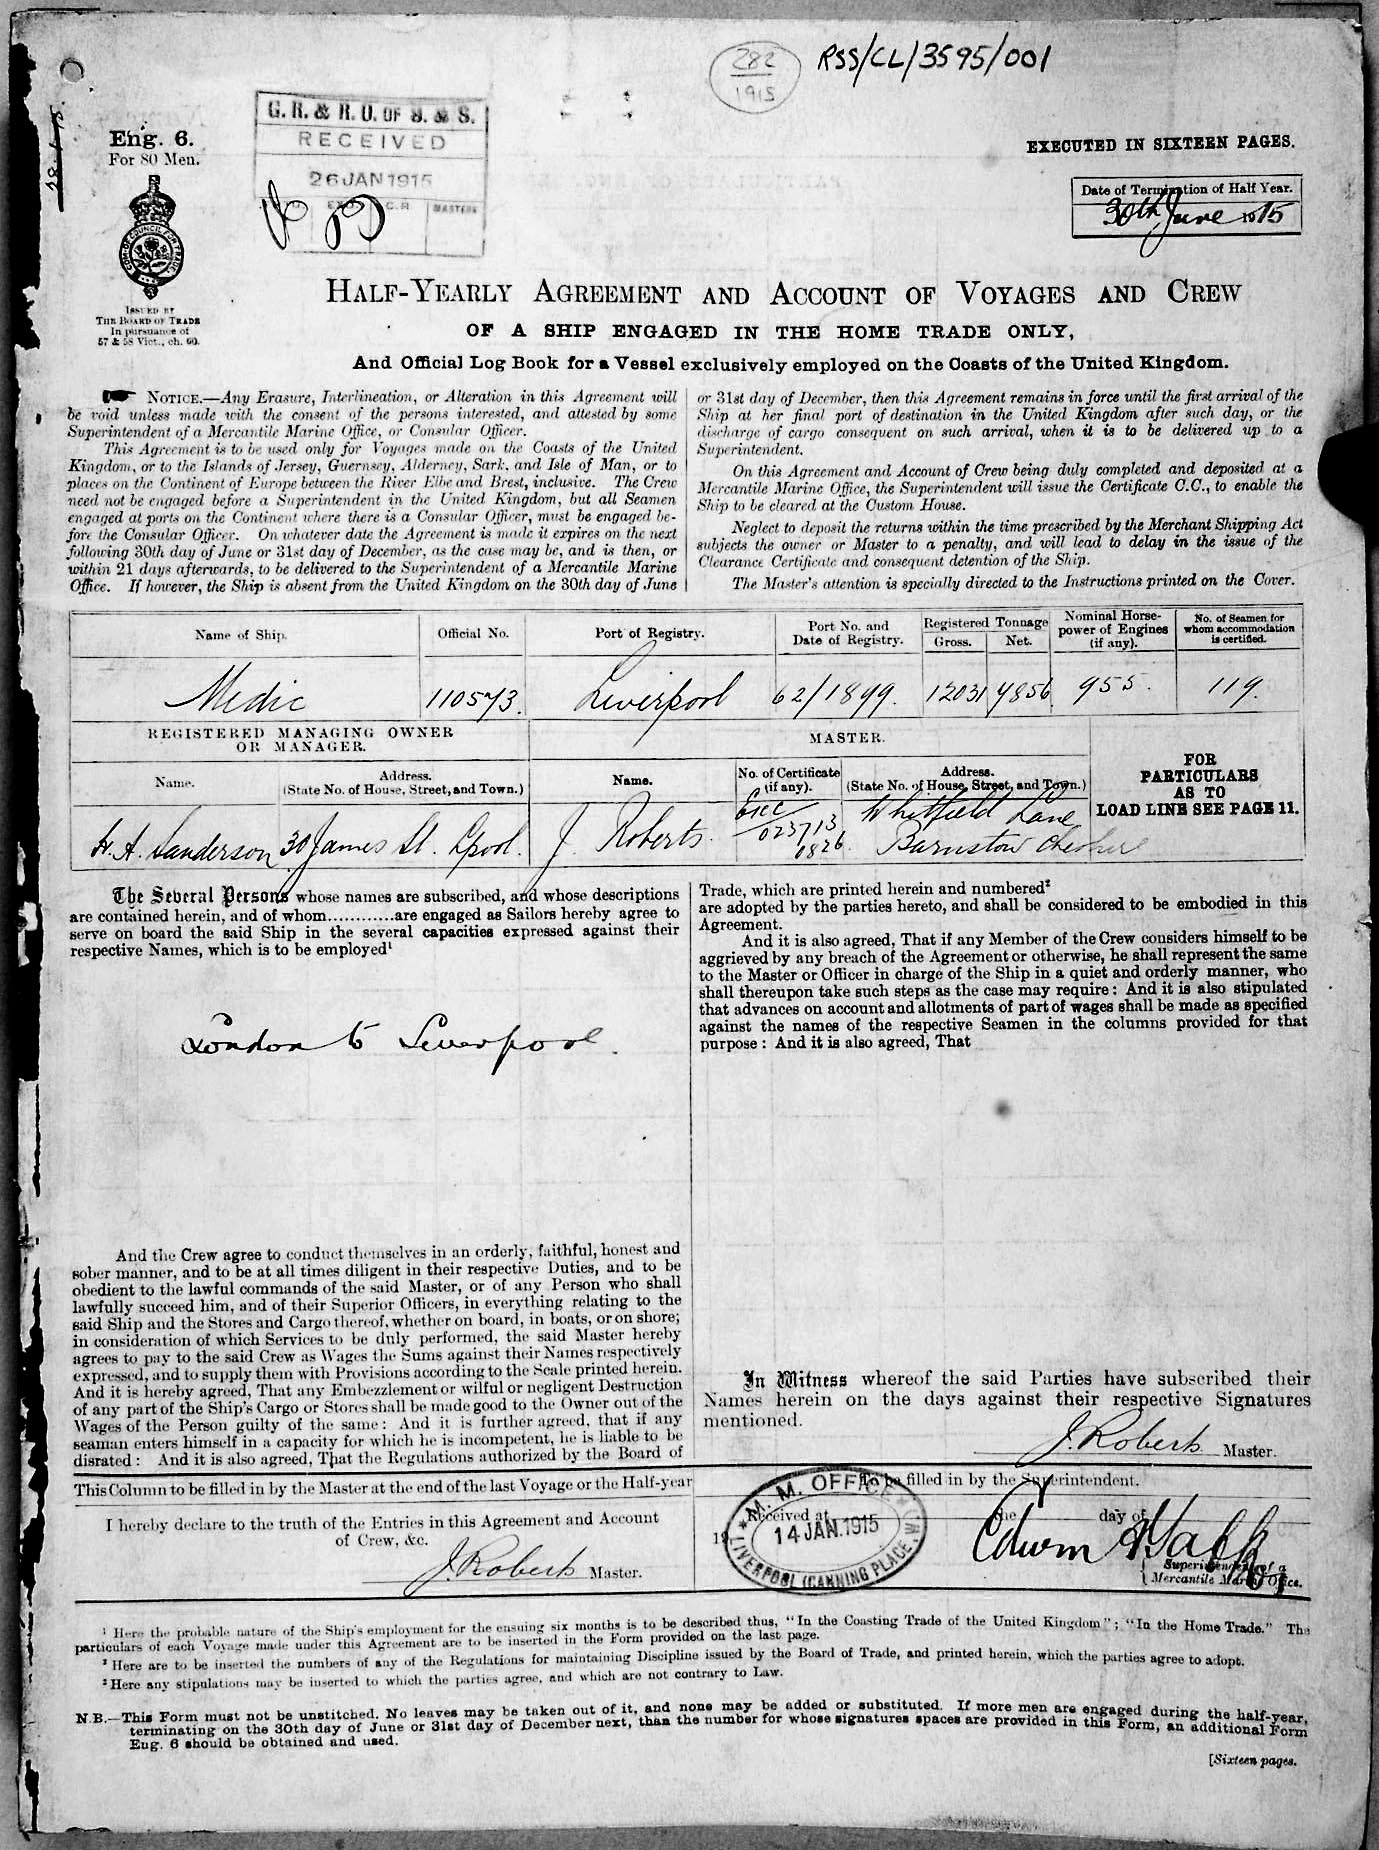 282
1915
RSS/CL/3595/001
28·1·15.
G. R. & R. U. OF S. & S.
RECEIVED
26 JAN 1915
C.R
MASTERS
Eng. 6.
For 80 Men.
ISSUED BY
THE BOARD OF TRADE
In pursuance of
57 & 58 Vict., ch. 60.
EXECUTED IN SIXTEEN PAGES.
Date of Termination of Half Year.
30th June 1915
HALF-YEARLY AGREEMENT AND ACCOUNT OF VOYAGES AND CREW
OF A SHIP ENGAGED IN THE HOME TRADE ONLY,
And Official Log Book for a Vessel exclusively employed on the Coasts of the United Kingdom.
NOTICE.—Any Erasure, Interlineation, or Alteration in this Agreement will
be void unless made with the consent of the persons interested, and attested by some
Superintendent of a Mercantile Marine Office, or Consular Officer.
This Agreement is to be used only for Voyages made on the Coasts of the United
Kingdom, or to the Islands of Jersey, Guernsey, Alderney, Sark, and Isle of Man, or to
places on the Continent of Europe between the River Elbe and Brest, inclusive. The Crew
need not be engaged before a Superintendent in the United Kingdom, but all Seamen
engaged at ports on the Continent where there is a Consular Officer, must be engaged be-
fore the Consular Officer. On whatever date the Agreement is made it expires on the next
following 30th day of June or 31st day of December, as the case may be, and is then, or
within 21 days afterwards, to be delivered to the Superintendent of a Mercantile Marine
Office. If however, the Ship is absent from the United Kingdom on the 30th day of June
or 31st day of December, then this Agreement remains in force until the first arrival of the
Ship at her final port of destination in the United Kingdom after such day, or the
discharge of cargo consequent on such arrival, when it is to be delivered up to a
Superintendent.
On this Agreement and Account of Crew being duly completed and deposited at a
Mercantile Marine Office, the Superintendent will issue the Certificate C.C., to enable the
Ship to be cleared at the Custom House.
Neglect to deposit the returns within the time prescribed by the Merchant Shipping Act
subjects the owner or Master to a penalty, and will lead to delay in the issue of the
Clearance Certificate and consequent detention of the Ship.
The Master's attention is specially directed to the Instructions printed on the Cover.
Name of Ship. Official No. Port of Registry. Port No. and Date of Registry. Registered Tonnage Gross. Net. Nominal Horse-power of Engines (if any). No. of Seamen for whom accommodation is certified.
Medic 110573. Liverpool 62/1899. 12031 7856 955. 119.
REGISTERED MANAGING OWNER
OR MANAGER.
MASTER.
Name. Address. (State No. of House, Street, and Town.) Name. No. of Certificate (if any). Address. (State No. of House, Street, and Town.)
FOR
PARTICULARS
AS TO
LOAD LINE SEE PAGE 11.
H. A. Sanderson 30 James St. Lpool. J. Roberts. 023713 0826. Whitfield Lane
Barnston Cheshire
The Several Persons whose names are subscribed, and whose descriptions
are contained herein, and of whom............are engaged as Sailors hereby agree to
serve on board the said Ship in the several capacities expressed against their
respective Names, which is to be employed¹
London to Liverpool.
And the Crew agree to conduct themselves in an orderly, faithful, honest and
sober manner, and to be at all times diligent in their respective Duties, and to be
obedient to the lawful commands of the said Master, or of any Person who shall
lawfully succeed him, and of their Superior Officers, in everything relating to the
said Ship and the Stores and Cargo thereof, whether on board, in boats, or on shore;
in consideration of which Services to be duly performed, the said Master hereby
agrees to pay to the said Crew as Wages the Sums against their Names respectively
expressed, and to supply them with Provisions according to the Scale printed herein.
And it is hereby agreed, That any Embezzlement or wilful or negligent Destruction
of any part of the Ship's Cargo or Stores shall be made good to the Owner out of the
Wages of the Person guilty of the same: And it is further agreed, that if any
seaman enters himself in a capacity for which he is incompetent, he is liable to be
disrated: And it is also agreed, That the Regulations authorized by the Board of
Trade, which are printed herein and numbered²
are adopted by the parties hereto, and shall be considered to be embodied in this
Agreement.
And it is also agreed, That if any Member of the Crew considers himself to be
aggrieved by any breach of the Agreement or otherwise, he shall represent the same
to the Master or Officer in charge of the Ship in a quiet and orderly manner, who
shall thereupon take such steps as the case may require: And it is also stipulated
that advances on account and allotments of part of wages shall be made as specified
against the names of the respective Seamen in the columns provided for that
purpose: And it is also agreed, That
In Witness whereof the said Parties have subscribed their
Names herein on the days against their respective Signatures
mentioned.
J. Roberts Master.
This Column to be filled in by the Master at the end of the last Voyage or the Half-year
I hereby declare to the truth of the Entries in this Agreement and Account
of Crew, &c.
J. Roberts Master.
To be filled in by the Superintendent.
Received at the day of
19
M. M. OFFICE
14 JAN. 1915
LIVERPOOL (CANNING PLACE, W)
Edwin
Superintendent of a
Mercantile Marine Office.
¹ Here the probable nature of the Ship's employment for the ensuing six months is to be described thus, "In the Coasting Trade of the United Kingdom"; "In the Home Trade." The
particulars of each Voyage made under this Agreement are to be inserted in the Form provided on the last page.
² Here are to be inserted the numbers of any of the Regulations for maintaining Discipline issued by the Board of Trade, and printed herein, which the parties agree to adopt.
³ Here any stipulations may be inserted to which the parties agree, and which are not contrary to Law.
N.B.—This Form must not be unstitched. No leaves may be taken out of it, and none may be added or substituted. If more men are engaged during the half-year,
terminating on the 30th day of June or 31st day of December next, than the number for whose signatures spaces are provided in this Form, an additional Form
Eng. 6 should be obtained and used.
[Sixteen pages.